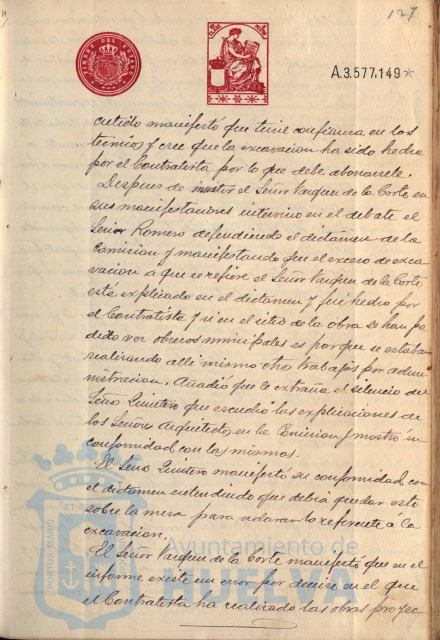 127
TIMBRE DEL ESTADO
A.3.577.149*
cutido manifesto que tiene confianza en los
tecnicos y cree que la excavacion ha sido hecha
por el Contratista por lo que debe abonarsele.
Despues de insistir el Señor Vazquez de la Corte en
sus manifestaciones intervino en el debate el
Señor Romero defendiendo el dictamen de la
Comision y manifestando que el exceso de exca
vacion a que se refiere el Señor Vazquez de la Corte
está explicado en el dictamen y fué hecho por
el Contratista y si en el sitio de la obra se han po
dido ver obreros municipales es por que se estaban
realizando alli mismo otro trabajos por admi
nistracion. Añadio que le extraña el silencio del
Señor Quintero que escuchó las explicaciones de
los Señores Arquitectos en la Comision y mostro su
conformidad con las mismas.
El Señor Quintero manifestó su conformidad con
el dictamen entendiendo que debia quedar esto
sobre la mesa para aclarar lo referente á la
excavacion.
El Señor Vazquez de la Corte manifestó que en el
informe existe un error por decirse en el que
el Contratista ha realizado las obras proyec
Ayuntamiento de
HUELVA